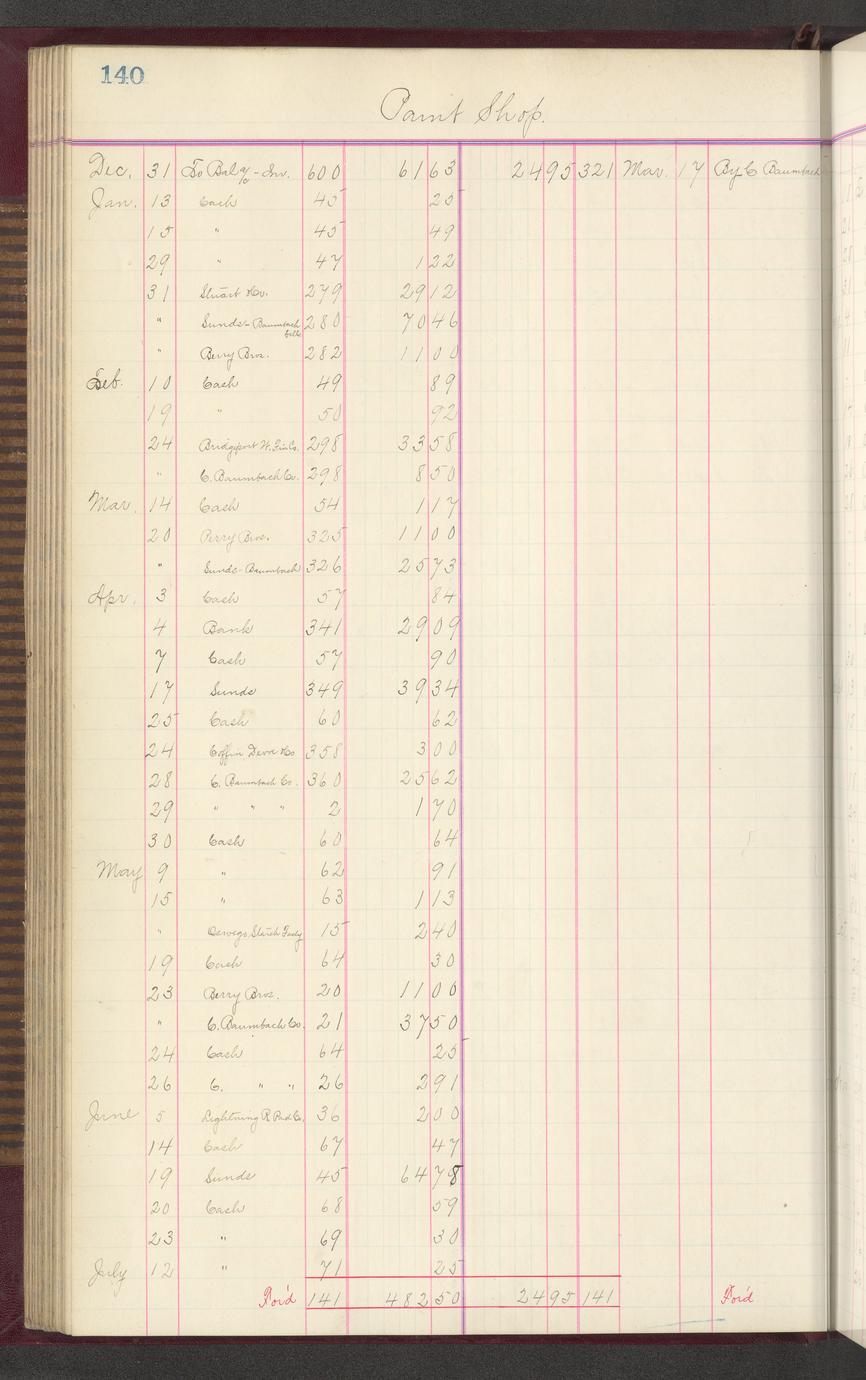 140
Paint Shop.
Dec. 31 To Bal % - Inv. 600 61 63 24 95 321 Mar. 17 By C Baumbach
Jan. 13 Cash 45 25
15 " 45 49
29 " 47 1 22
31 Stuart Co. 279 29 12
" Sunds - Baumbach bills 280 70 46
" Berry Bros. 282 11 00
Feb. 10 Cash 49 89
19 " 50 92
24 Bridgeport W. Fin Co. 298 33 58
" C. Baumbach Co. 298 8 50
Mar. 14 Cash 54 1 17
20 Berry Bros. 325 11 00
" Sunds - Baumbach 326 25 73
Apr. 3 Cash 57 84
4 Bank 341 29 09
7 Cash 57 90
17 Sunds 349 39 34
25 Cash 60 62
24 Coffin Devoe Co 358 3 00
28 C. Baumbach Co. 360 25 62
29 " " " 2 1 70
30 Cash 60 64
May 9 " 62 91
15 " 63 1 13
" Oswego Starch Facty 15 2 40
19 Cash 64 30
23 Berry Bros. 20 11 00
" C. Baumbach Co. 21 37 50
24 Cash 64 25
26 C. " " 26 2 91
June 5 Lightning R Co. 36 2 00
14 Cash 67 47
19 Sunds 45 64 78
20 Cash 68 59
23 " 69 30
July 12 " 71 25
For'd 141 482 50 24 95 141 For'd